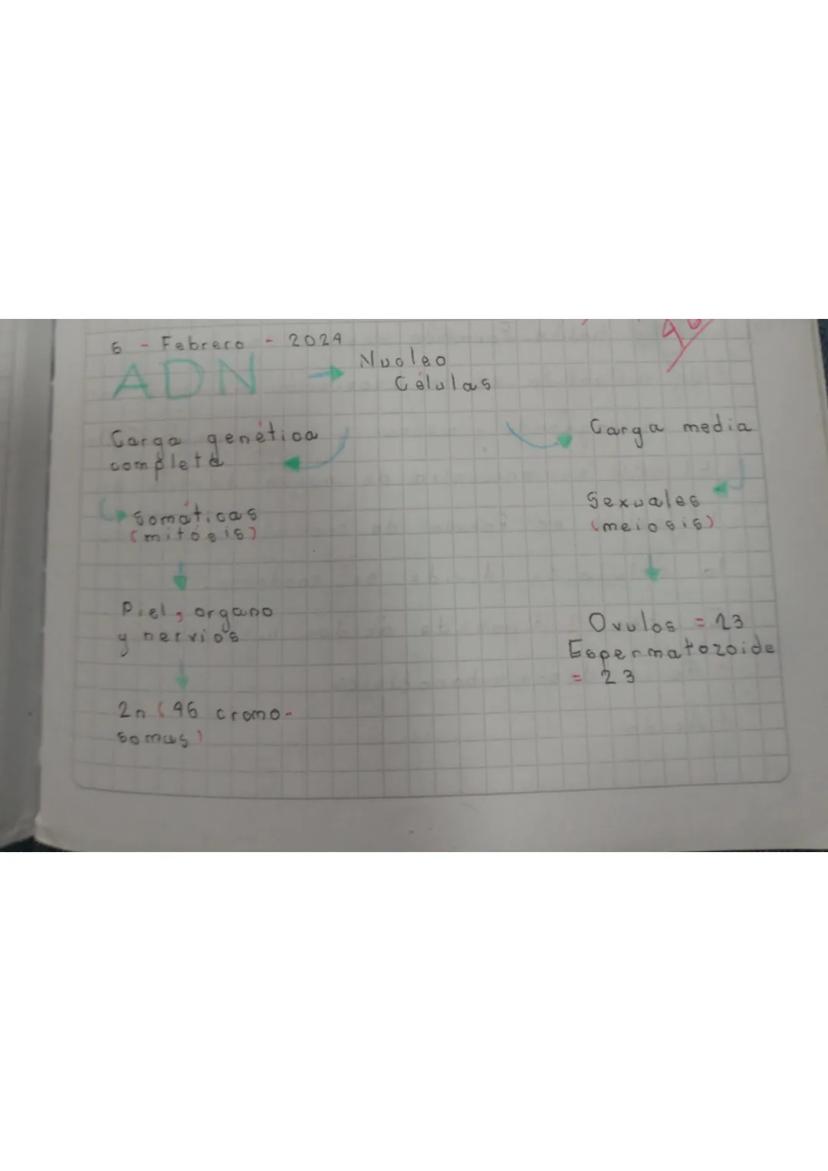 6 - Febrero - 2024
ADN → Nucleo
Células
Carga genética
completa
Carga media
Somáticas
(mitósis)
Sexuales
(meiosis)
Piel, organo
y nervios
Ovulos = 23
Espermatozoide
= 23
2n (46 cromo-
somas)